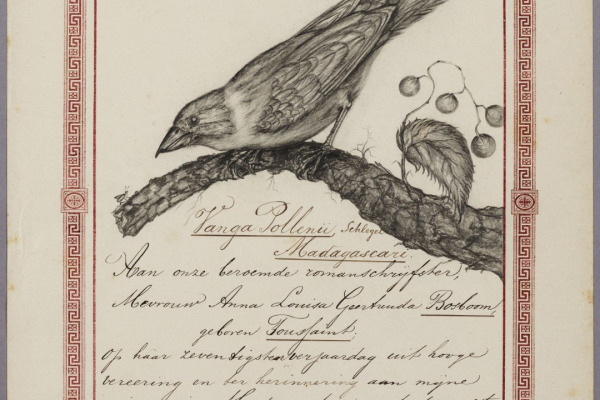 Vanga Pollenii, Schlegel
Madagascar.
Aan onze beroemde romanschrijfster,
Mevrouw Anna Louisa Geertruida Bosboom,
geboren Toussaint.
Op haar zeventigsten verjaardag uit hooge
vereering en ter herinnering aan mijne